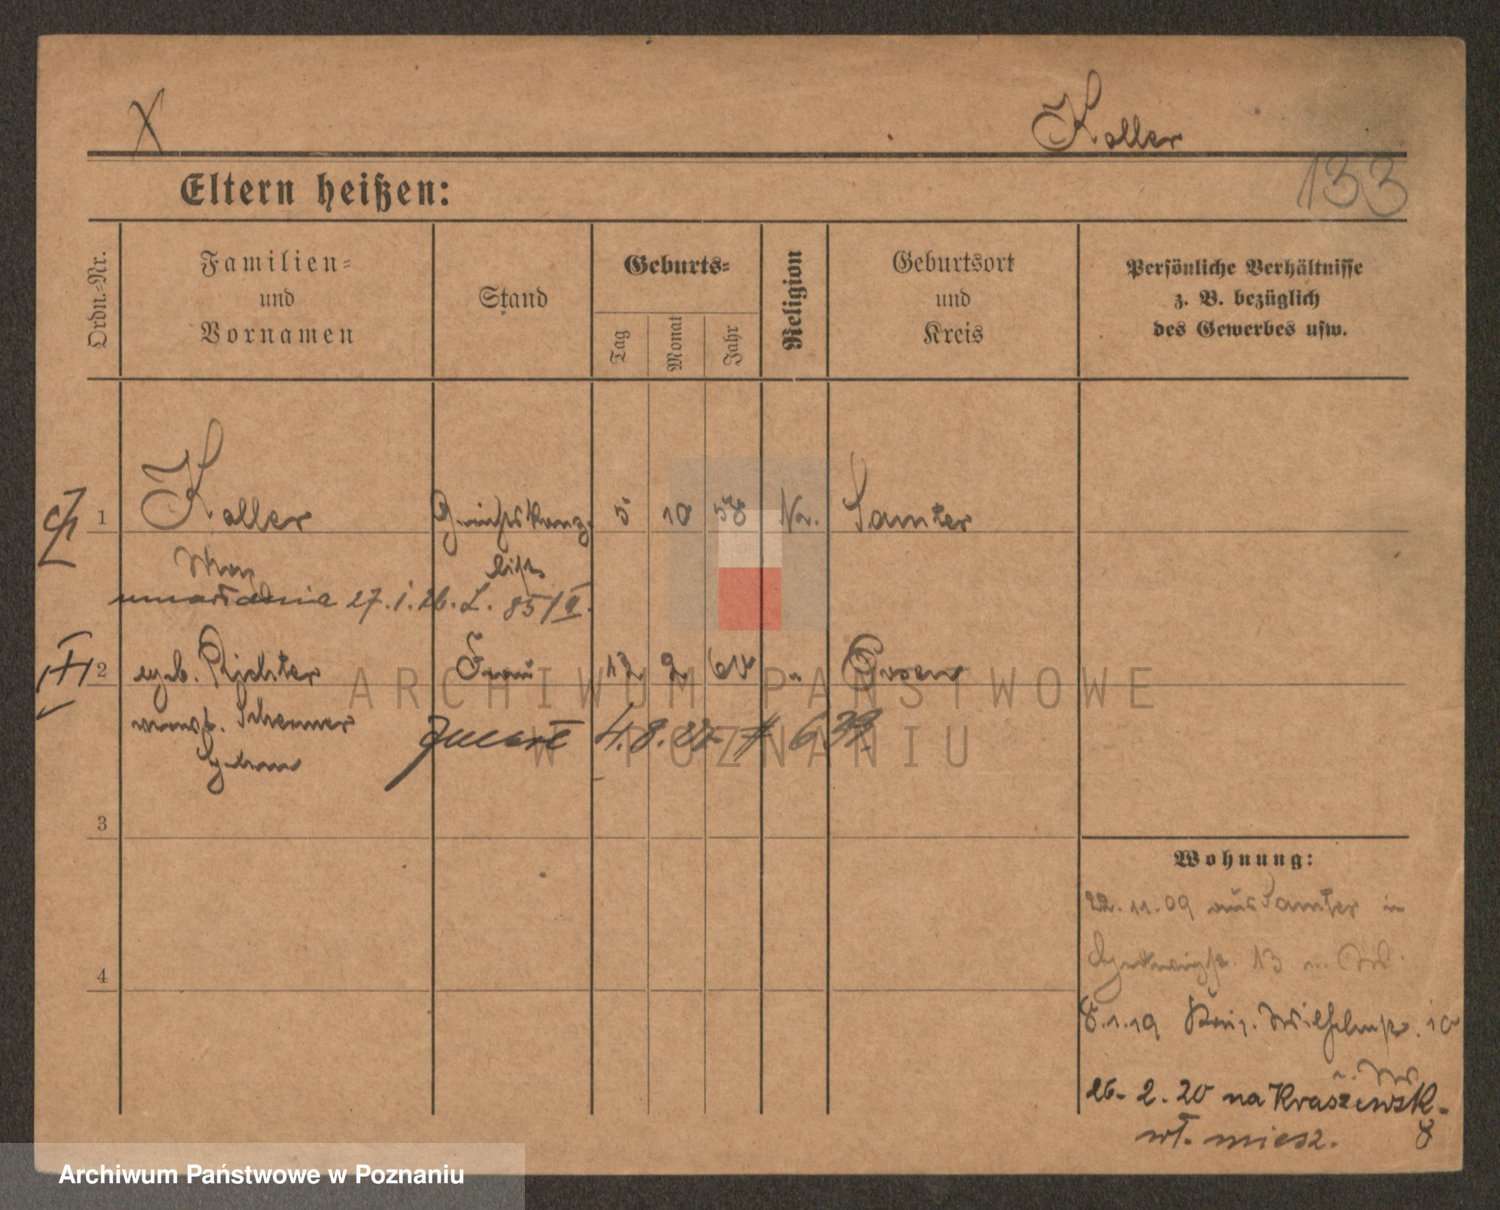 X
Koller
133
Eltern heißen:
Ordn.-Nr.
Familien-
und
Vornamen
Stand
Geburts-
Tag
Monat
Jahr
Religion
Geburtsort
und
Kreis
Persönliche Verhältnisse
z. B. bezüglich
des Gewerbes usw.
1 Koller Gerichtskanz- 5 10 58 Samter
Max list
27.1.26. L. 85/II.
2 geb. Richter Frau 17 2 " Posen
Zmarł 4.8.37 # 639
3
Wohnung:
22.11.09 aus Samter in
Hedwigstr. 13
4
8.1.19 Kais. Wilhelmstr. 10
26-2.20 na Kraszewsk-
wł. miesz. 8
ARCHIWUM PAŃSTWOWE
W POZNANIU
Archiwum Państwowe w Poznaniu